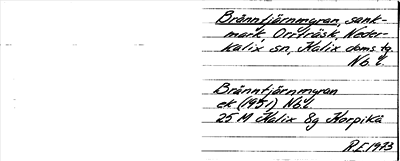 Bränntjärnmyran, sank-
mark, Orrträsk, Neder-
kalix sn, Kalix doms. tg.
Nb. l.
Bränntjärnmyran
ek (1951) Nb.l.
25 M Kalix 8g Korpikå
R.I. 1973